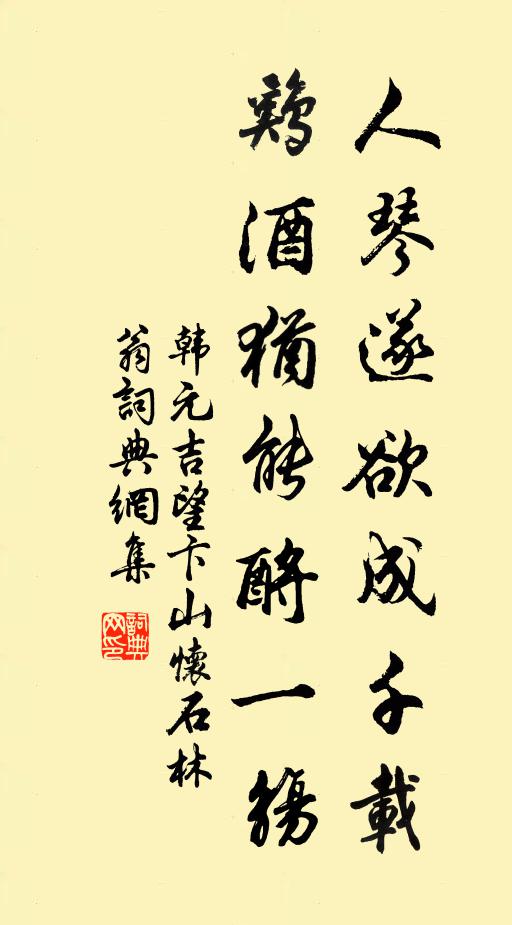 人琴遂欲成千載
鷄酒猶能酹一觴
韩元吉望卞山懷石林
翁詞典網集
詞典
网印